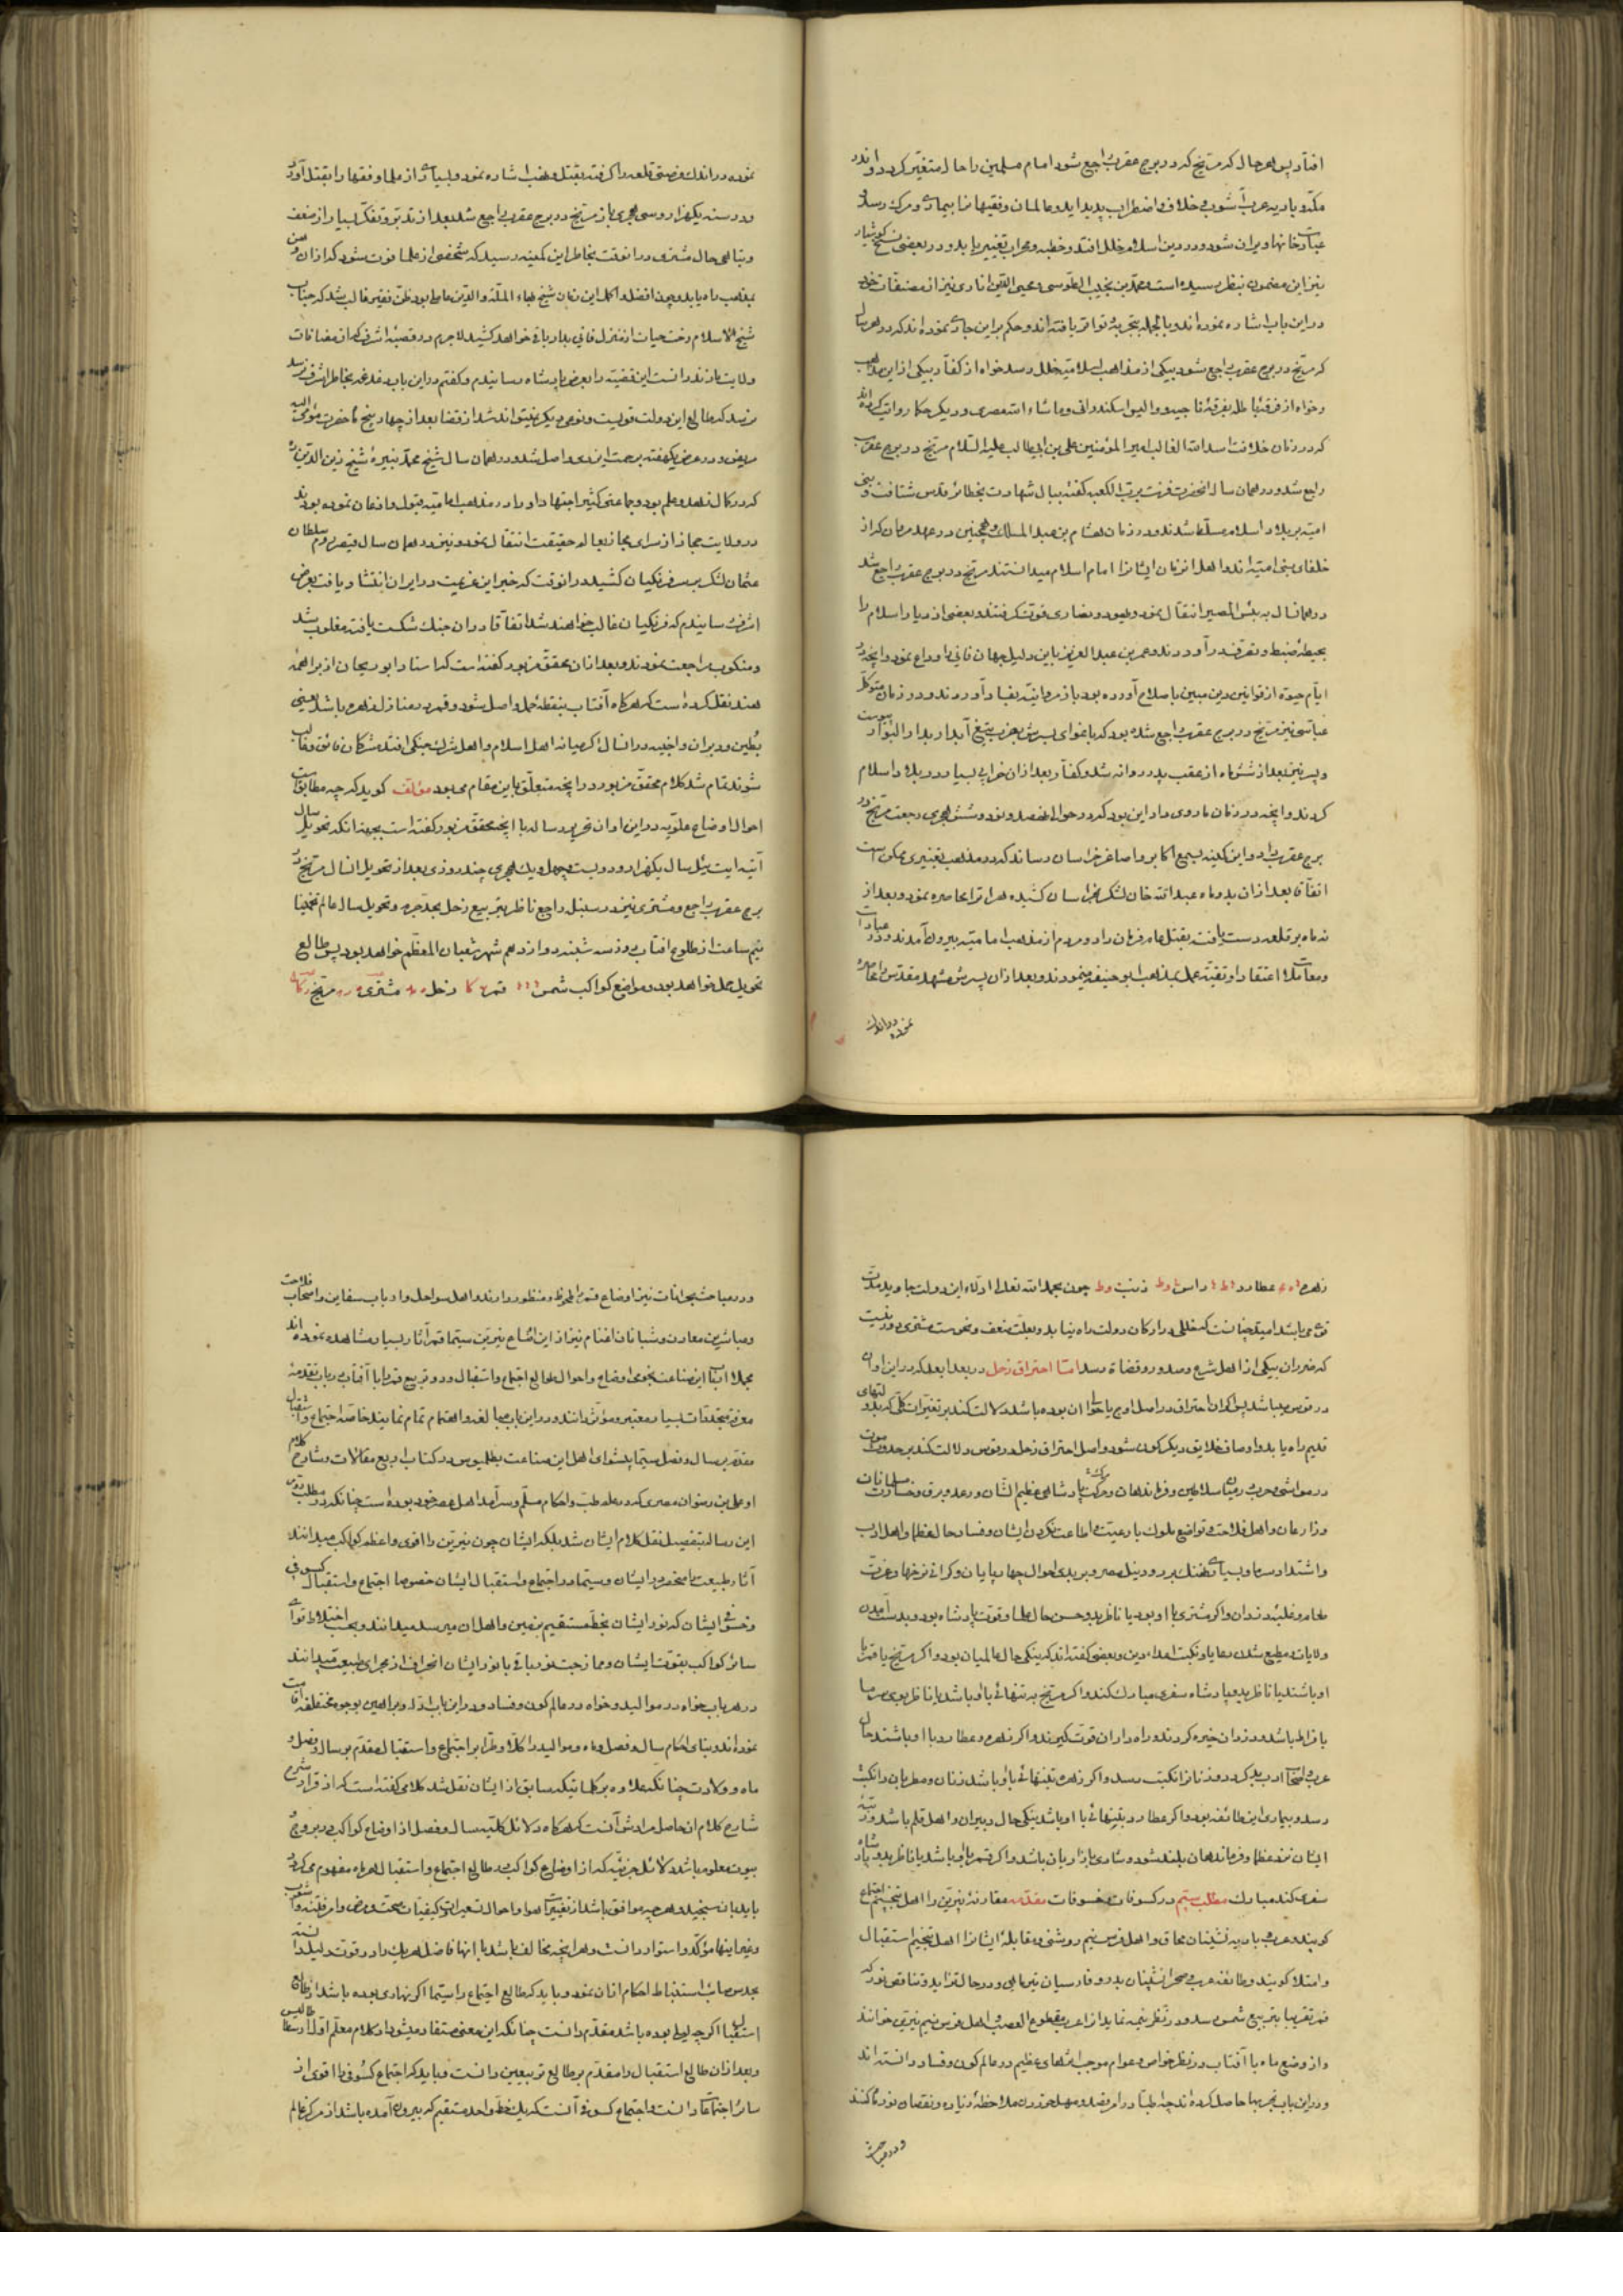 افتاد پس هر حال که مریخ که در برج عقرب راجع شود امام مسلمین را حال متغیر گردد و اندر
مکه و بادیه عرب آشوب و خلاف و اضطراب پدید آید و عالمان و فقیهانرا بیماری و مرگ رسد و
عبادتخانها ویران شود و در دین اسلام خلل افتد و خطبه و محراب تغییر یابد و در بعضی نسخ کوشیار
نیز این مضمون بنظر رسیده است و محمد بن نجیب الطوسی و محیی الدین اناری نیز از مصنفات خود
در این باب اشاره نموده اند و بالجمله بتجربه تواتر یافته اند و حکم بر این جاری نموده اند که در هر سال
که مریخ در برج عقرب راجع شود بیکی از مذاهب اسلامیه خلل رسد خواه از کفار و بیکی از این مذاهب
و خواه از فرقهٔ باطله بفرقهٔ ناجیه و والیس اسکندرانی و ماشاء الله مصری و دیگر حکما روایت کرده اند
که در زمان خلافت اسد الله الغالب امیر المؤمنین علی بن ابیطالب علیه السلام مریخ در برج عقرب
راجع شد و در همان سال آنحضرت فزت برب الکعبه گفته ببال شهادت بحظائر قدس شتافت و بنی
امیه بر بلاد اسلام مسلط شدند و در زمان هشام بن عبد الملک و همچنین در عهد مروان که از
خلفای بنی امیه اند و اهل آنزمان ایشانرا امام اسلام میدانستند مریخ در برج عقرب راجع شد
در همانسال به بئس المصیر انتقال نمود و یهود و نصاری قوت گرفتند و بعضی از دیار اسلام را
بحیطهٔ ضبط و تصرف در آوردند و عمر بن عبد العزیز باین دلیل جهان فانی را وداع نمود و آنچه در
ایام حیوة از قوانین دین مبین باصلاح آورده بود باز مروانیه بفساد آوردند و در زمان متوکل
عباسی نیز مریخ در برج عقرب راجع شده بود که باغوای پسرش بضرب تیغ آبدار بدار البوار پیوست
و پسر نیز بعد از ششماه از عقب پدر روانه شد و کفار بعد از آن خرابی بسیار در بلاد اسلام
کردند و آنچه در زمان ما روی داد این بود که در حوالی نهصد و نود و شش هجری رجعت مریخ در
برج عقرب بود و این کمینه بسمع اکابر و اصاغر خراسان رساند که در مذهب تغییری ممکن است
اتفاقا بعد از آن بدو ماه عبد الله خان لشکر بخراسان کشیده هراة را محاصره نمود و بعد از
نه ماه بر قلعه دست یافت بقتل عام فرمان داد و مردم از مذهب امامیه بیرون آمدند و در عبادات
و معاملات اعتقادا و تقیة عمل بمذهب ابو حنیفه مینمودند و بعد از آن پسرش مشهد مقدس را محاصره
نموده در اندک
نموده در اندک فرصتی قلعه را گرفته بقتل و نهب اشاره نمود و بسیاری از علما و فقها را بقتل آورد
و در سنه یکهزار و سی هجری باز مریخ در برج عقرب راجع شد بعد از تدبر و تفکر بسیار از ضعف
و تباهی حال مشتری در آنوقت بخاطر این کمینه رسید که شخصی از علما فوت شود که از آن وهن
بمذهب راه یابد و چون افضل و اکمل این زمان شیخ بهاء الملة و الدین عاملی بود ظن فقیر غالب شد که جناب
شیخ الاسلام رخت حیات از منزل فانی بدار باقی خواهد کشید لاجرم در قصبهٔ اشرف که از مضافات
ولایت مازندرانست این قضیه را بعرض پادشاه رسانیدم و گفتم در این باب دغدغه بخاطر اشرف نرسد
که طالع این دولت قویست و نوعی دیگر نمیتواند شد از قضا بعد از چهار پنج ماه حضرت مومی الیه
مریض و در عرض یکهفته برحمت ایزدی واصل شد و در همان سال شیخ محمد نبیرهٔ شیخ زین الدین
که در کمال زهد و علم بود و جماعتی کثیر اجتهاد او را در مذهب امامیه قبول و اذعان نموده بودند
در ولایت حجاز از سرای مجاز بعالم حقیقت انتقال نمود و نیز در همان سال قیصر روم سلطان
عثمان لشکر بر سر فرنگیان کشید در آنوقت که خبر این عزیمت در ایران انتشار یافت بعرض
اشرف رسانیدم که فرنگیان غالب خواهند شد اتفاقا در آن جنگ شکست یافته مغلوب شد
و منکوب مراجعت نمودند و بعد از آن محقق مزبور گفته است که استاد ابو ریحان از براهمهٔ
هند نقل کرده است که هر گاه آفتاب بنقطهٔ حمل واصل شود و قمر در منازل زهره باشد یعنی
بطین و دبران و اخبیه در آنسال اگر میانه اهل اسلام و اهل شرک جنگی افتد مشرکان فائق و غالب
شوند تمام شد کلام محقق مزبور و آنچه متعلق باین مقام می بود مؤلف گوید که چه مطابق است
احوال اوضاع علویه در این اوان تحریر رساله با آنچه محقق مزبور گفته است بجهة آنکه تحویل سال
آتیه ایت ئیل سال یکهزار و دویست و چهل و یک هجری چند روزی بعد از تحویل آنسال مریخ در
برج عقرب راجع و مشتری نیز در سنبله راجع ناظر بتربیع زحل بحد جوزا و تحویل سال عالم تخمینا
نیم ساعت از طلوع آفتاب روز سه شنبه دوازدهم شهر شعبان المعظم خواهد بود پس طالع
تحویل حمل خواهد بود و مواضع کواکب شمس قمر زحل مشتری مریخ
زهره عطارد راس ذنب چون بحمد الله تعالی ادلهٔ این دولت جاوید مدت
قوی میباشد امید چنانست که خللی در ارکان دولت راه نیابد و بعلت ضعف و نحوست مشتری دور نیست
که ضرر آن بیکی از اهل شرع و صدور و قضاة رسد اما احتراق زحل
در قوس میباشد پس اگر آن احتراق در اصل اوج یا حوالی آن بوده باشد دلالت کند بر تغیرات کلی که بدولتهای
قدیم راه یابد و اوصاف خلایق دیگرگون شود و اصل احتراق زحل در قوس دلالت کند بر حدوث موت
و زارعان و اهل فلاحت و تواضع ملوک با رعیت و اطاعت نکردن ایشان و فساد حال عظما و اهل ادب
ولایات و مطیع شدن رعایا و نکبت اعداء دین و بعضی گفته اند که نیکی حال عالمیان بود و اگر مریخ یا قمر با
او باشند یا ناظر بدو پادشاه سفری مبارک کند و اگر مریخ به تنهائی با او باشد یا ناظر بوی سرما
بافراط باشد و دزدان خیره گردند و راه داران قوت گیرند و اگر زهره و عطارد با او باشند حال
عرب و اصحاب ادب بد گردد و زنانرا نکبت رسد و اگر زهره بتنهائی با او باشد زنان و مطربان را نکبت
رسد و بیماری این طائفه بود و اگر عطارد بتنهائی با او باشد نیکی حال دبیران و اهل قلم باشد و رتبهٔ
ایشان نزد عظما و فرماندهان بلند شود و شادی بازاریان باشد و اگر قمر با او باشد یا ناظر بدو پادشاه
سفری کند مبارک مطلب سیم در کسوفات و خسوفات مقدمه مقارنهٔ نیرین را اهل تنجیم اجتماع
گویند و عرب بادیه نشینان محاق و اهل فرس نیم روشنی و مقابلهٔ ایشانرا اهل تنجیم استقبال
و امتلا گویند و طائفهٔ عرب و صحرانشینان بدر و فارسیان نیر ماهی و در حال تزاید و تناقص نور که
و از وضع ماه با آفتاب در نظر خواص و عوام موجب اثرهای عظیم در عالم کون و فساد دانسته اند
و در این باب تجربها حاصل کرده اند چه اطبا در امر فصد و مسهل خوردن ملاحظهٔ زیاده و نقصان نور ماه کنند
و در مباحث
و در مباحث بحرانات نیز اوضاع قمر را ملحوظ و منظور دارند و اهل سواحل و ارباب سفاین و اصحاب فلاحت
و مباشرین معادن و شبانان اغنام نیز از این اشباع نیرین سیما قمر آثار بسیار مشاهده نموده اند
معرفت مختلفات بسیار معتبر و مؤثر دانند و در این باب مبالغه و اهتمام تمام نمایند خاصه اجتماع و استقبال
مقدم بر سال و فصل سیما پیشوای اهل این صناعت بطلیموس در کتاب اربع مقالات و شارح کلام
او علی بن رضوان مصری که در علم طب و احکام مسلم و سرآمد اهل عصر خود بوده است چنانکه در مطلب دوم
این رساله بتفصیل نقل کلام ایشان شد بلکه ایشان چون نیرین را اقوی و اعظم کواکب میدانند
و خسوفی ایشان که نور ایشان بخط مستقیم بزمین و اهل آن میرسد میدانند و بحسب اختلاط قوای
سائر کواکب بقوت ایشان و ممازجت نور باقی با نور ایشان انحراف از مجرای طبیعت میدانند
در هر باب خواه در موالید و خواه در عالم کون و فساد و در این باب ادله و براهین بوجوه مختلفه اقامت
نموده اند و بنای احکام سال و فصل و ماه و موالید را کلا و طرا بر اجتماع و استقبال مقدم بر سال و فصل و
ماه و ولادت چنانکه علاوه بر کلماتیکه سابق از ایشان نقل شد کلامی گفته است که از قرار شرح
شارح کلام آن حاصل مرادش آنست که هر گاه دلائل کلیه سال و فصل از اوضاع کواکب در بروج و
بیوت معلوم باشد دلائل جزئیه که از اوضاع کواکب در طالع اجتماع و استقبال هر ماه مفهوم میگردد
استقبال اگر چه لیلی بوده باشد مقدم دانست چنانکه این معنی مستفاد میشود از کلام معلم اول ارسطاطالیس
و بعد از آن طالع استقبال را مقدم بر طالع تربیعین دانست و باید که اجتماع کسوفی را اقوی از
سائر اجتماعات دانست و اجتماع کسوفی آنست که بیک خط واحد مستقیم که بیرون آمده باشد از مرکز عالم